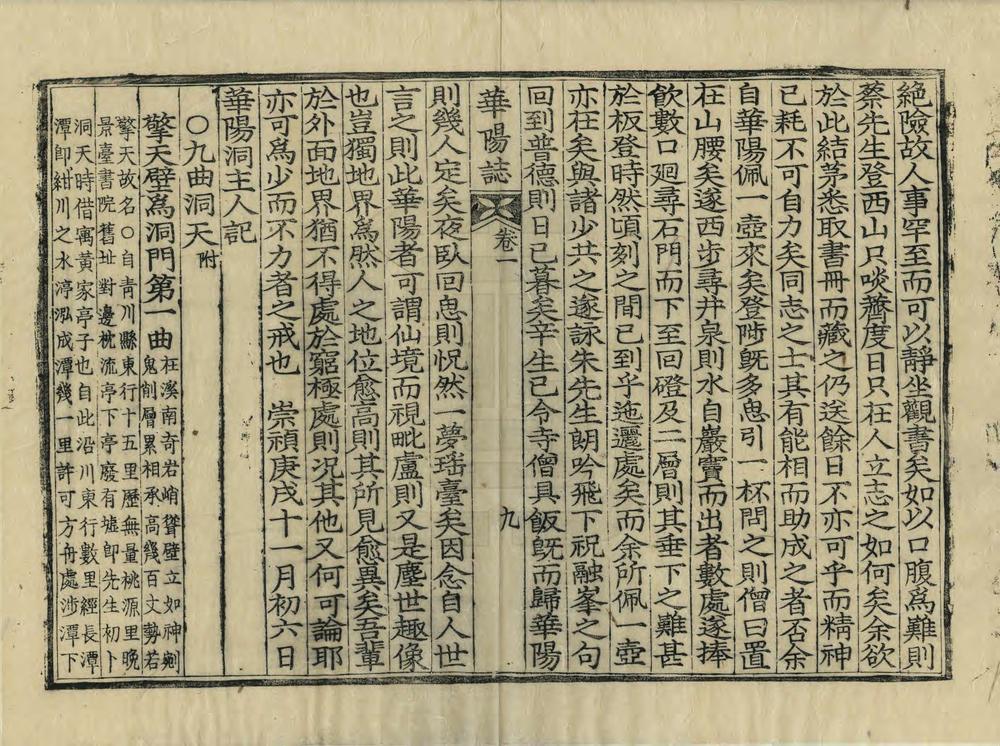 絶險故人事罕至而可以靜坐觀書矣如以口腹爲難則
蔡先生登西山只啖虀度日只在人立志之如何矣余欲
於此結茅悉取書冊而藏之仍送餘日不亦可乎而精神
已耗不可自力矣同志之士其有能相而助成之者否余
自華陽佩一壺來矣登陟旣多思引一杯問之則僧曰置
在山腰矣遂西步尋井泉則水自巖竇而出者數處遂捧
飮數口廻尋石門而下至回磴及二層則其垂下之難甚
於板登時然頃刻之間已到乎迤邐處矣而余所佩一壺
亦在矣與諸少共之遂詠朱先生朗吟飛下祝融峯之句
回到普德則日已暮矣辛生已令寺僧具飯旣而歸華陽
華陽誌 卷一 九
則幾人定矣夜臥回思則怳然一夢瑤臺矣因念自人世
言之則此華陽者可謂仙境而視毗盧則又是塵世趣像
也豈獨地界爲然人之地位愈高則其所見愈異矣吾輩
於外面地界猶不得處於窮極處則况其他又何可論耶
亦可爲少而不力者之戒也 崇禎庚戌十一月初六日
華陽洞主人記
○九曲洞天附
擎天壁爲洞門第一曲在溪南奇岩峭聳壁立如神剜
鬼削層累相承高幾百丈勢若
擎天故名○自靑川縣東行十五里歷無量桃源里晩
景臺書院舊址對邊枕流亭下亭廢有墟卽先生初卜
洞天時借寓黃家亭子也自此沿川東行數里經長潭
潭卽紺川之水渟泓成潭幾一里許可方舟處涉潭下